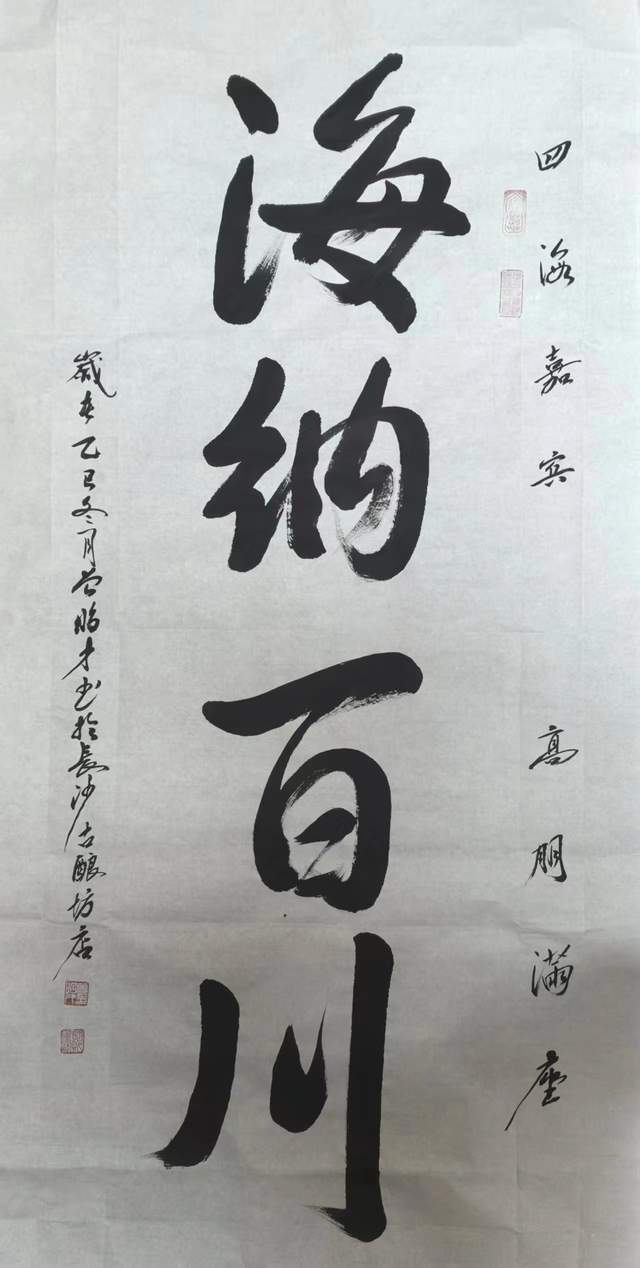 四海嘉宾 高朋满座
海纳百川
歲在乙巳冬月 才书於長沙古酿坊店